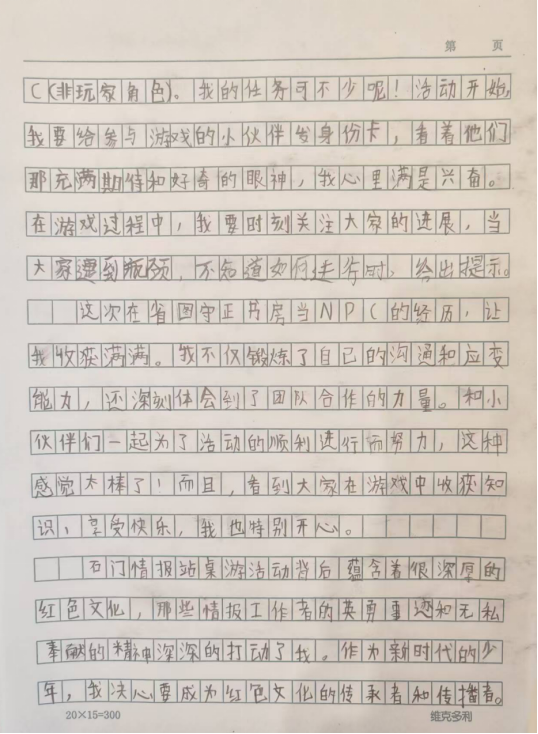 第 页
C(非玩家角色)。我的任务可不少呢！活动开始,
我要给参与游戏的小伙伴发身份卡，看着他们
那充满期待和好奇的眼神，我心里满是兴奋。
在游戏过程中，我要时刻关注大家的进展，当
大家遇到瓶颈，不知道如何进行时，给出提示。
这次在省图守正书房当NPC的经历，让
我收获满满。我不仅锻炼了自己的沟通和应变
能力，还深刻体会到了团队合作的力量。和小
伙伴们一起为了活动的顺利进行而努力，这种
感觉太棒了！而且，看到大家在游戏中收获知
识、享受快乐，我也特别开心。
石门情报站桌游活动背后蕴含着很深厚的
红色文化，那些情报工作者的英勇事迹和无私
奉献的精神深深的打动了我。作为新时代的少
年，我决心要成为红色文化的传承者和传播者。
20×15=300 维克多利